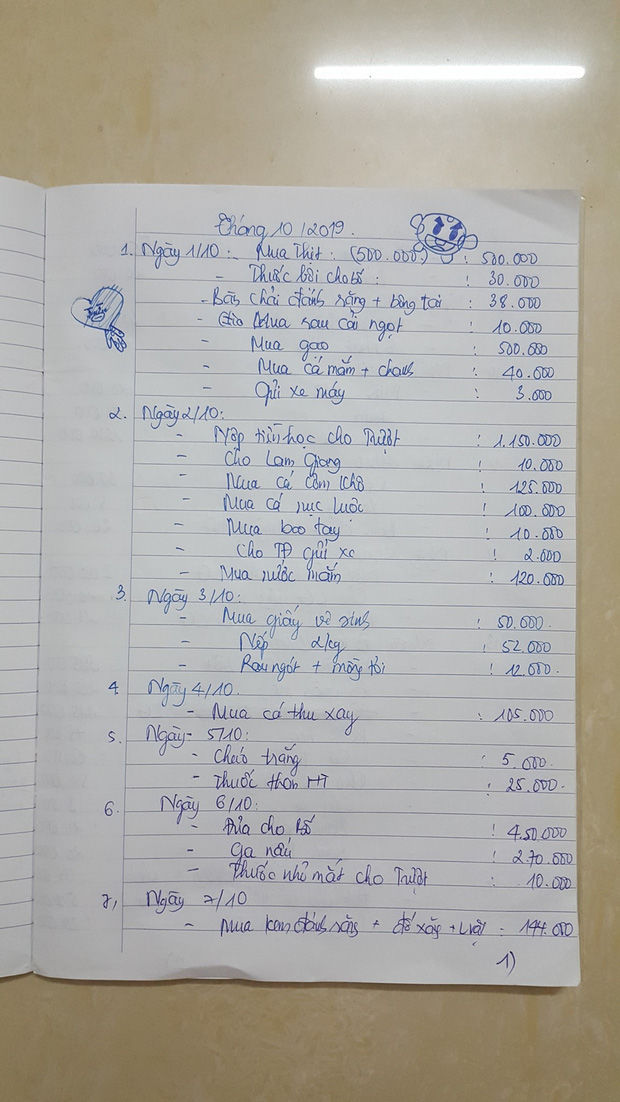 Tháng 10/2019.
1. Ngày 1/10: - Mua Thịt: (500.000) : 500.000
- Thuốc bôi cho bố : 30.000
- Bàn chải đánh răng + bông tai : 38.000
- Mua rau cải ngọt : 10.000
- Mua gạo : 500.000
- Mua cá mắm + chanh : 40.000
- Gửi xe máy : 3.000
2. Ngày 2/10:
- Nộp tiền học cho : 1.150.000
- Cho Lam Giang : 10.000
- Mua cá cơm khô : 125.000
- Mua cá nục luộc : 100.000
- Mua bao tay : 10.000
- Cho TĐ gửi xe : 2.000
- Mua nước mắm : 120.000
3. Ngày 3/10:
- Mua giấy vệ sinh : 50.000
- Nếp 2kg : 52.000
- Rau ngót + mồng tơi : 12.000
4. Ngày 4/10.
- Mua cá thu xay : 105.000
5. Ngày - 5/10:
- Cháo trắng : 5.000
- Thuốc HT : 25.000
6. Ngày 6/10:
- Đưa cho Bố : 450.000
- Ga nấu : 270.000
- Thuốc nhỏ mắt cho : 10.000
7, Ngày 7/10
- Mua kem đánh răng + + : 144.000
1)